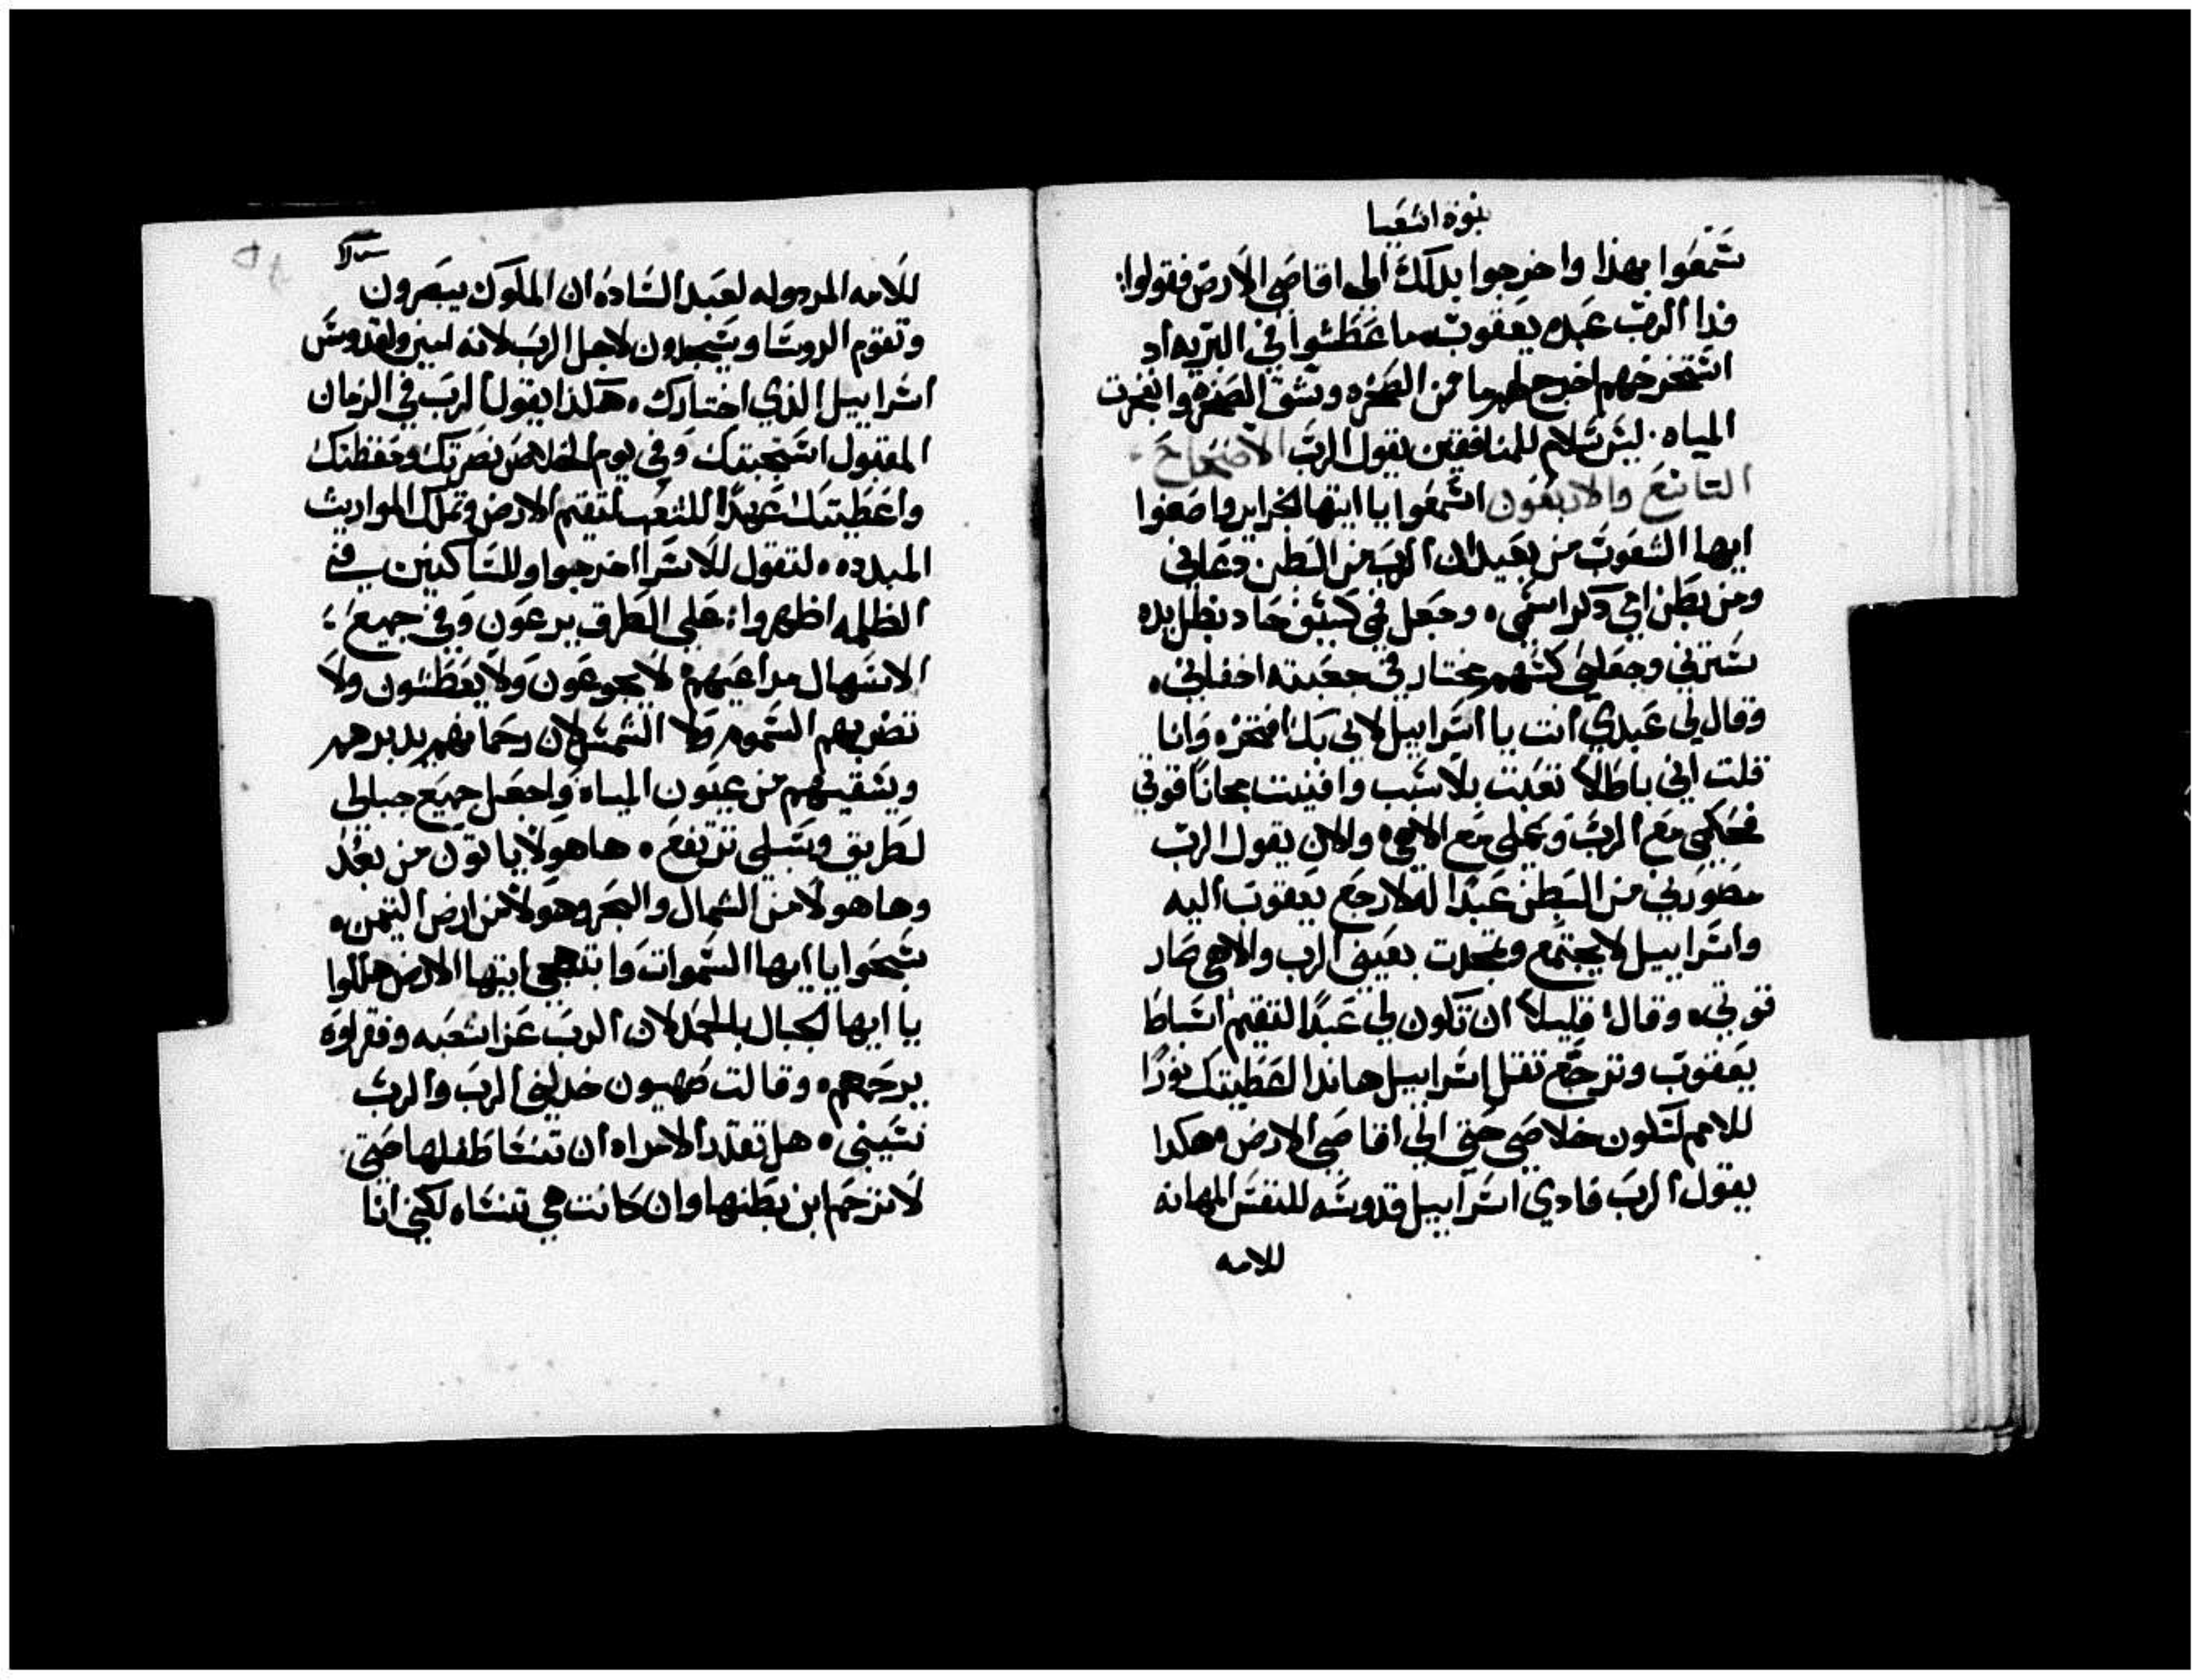 نبوة اشعيا
سمعوا بهذا واخرجوا بذلك الى اقاصي الارض فقولوا
فدا الرب عبده يعقوب ما عطشوا في البريه اد
استخرجهم اخرج لهم ما من الصخره وشق الصخره وانفجرت
المياه. ليس سلام للمنافقين يقول الرب الاصحاح
التاسع والاربعون اسمعوا يا ايتها الجزاير واصغوا
ايها الشعوب من بعيد الرب من البطن دعاني
ومن بطن امي دكر اسمي. وجعل فمي كسيف حاد بظل يده
سترني وجعلني كسهم مختار في جعبته اخفاني.
وقال لي عبدي انت يا اسراييل لاني بك افتخره وانا
قلت اني باطلا تعبت بلا سبب وافنيت مجانا قوتي
فحكمي مع الرب وعملي مع الاهي. والان يقول الرب
مصوري من البطن عبدا له لارجع يعقوب اليه
واسراييل لا يجتمع وتمجدت بعيني الرب والاهي صار
قوتي. وقال قليلا ان تكون لي عبدا لتقيم اسباط
يعقوب وترجع تفل اسراييل هاندا اعطيتك نورا
للامم لتكون خلاصي حتى الى اقاصي الارض هكدا
يقول الرب فادي اسراييل قدوسه للنفس المهانه
للامه
للامه المردوله لعبد الساده ان الملوك يبصرون
وتقوم الروسا ويسجدون لاجل الرب لانه امين ولقدوس
اسراييل الذي اختارك. هكذا يقول الرب في الزمان
المقبول استجبتك وفي يوم الخلاص نصرتك وحفظتك
واعطيتك عهدا للشعب لتقيم الارض وتملك المواريث
المبدده. لتقول للاسرا اخرجوا وللساكنين في
الظلمه اظهروا: على الطرق يرعون وفي جميع
الاسهال مراعيهم لا يجوعون ولا يعطشون ولا
تضربهم السموم ولا الشمس لان رحمانهم يدبرهم
ويسقيهم من عيون المياه واجعل جميع جبالي
لطريق وسبلي ترتفع. ها هولا ياتون من بعد
وها هولا من الشمال والبحر وهولا من ارض التيمن.
سبحوا يا ايها السموات وابتهجي ايتها الارض هللوا
يا ايها الجبال بالحمد لان الرب عزا شعبه وفقراوه
يرحمهم. وقالت صهيون خدلني الرب والرب
نسيني. هل تقدر الامراه ان تنسا طفلها حتى
لا ترحم ابن بطنها وان كانت هي تنساه لكني انا